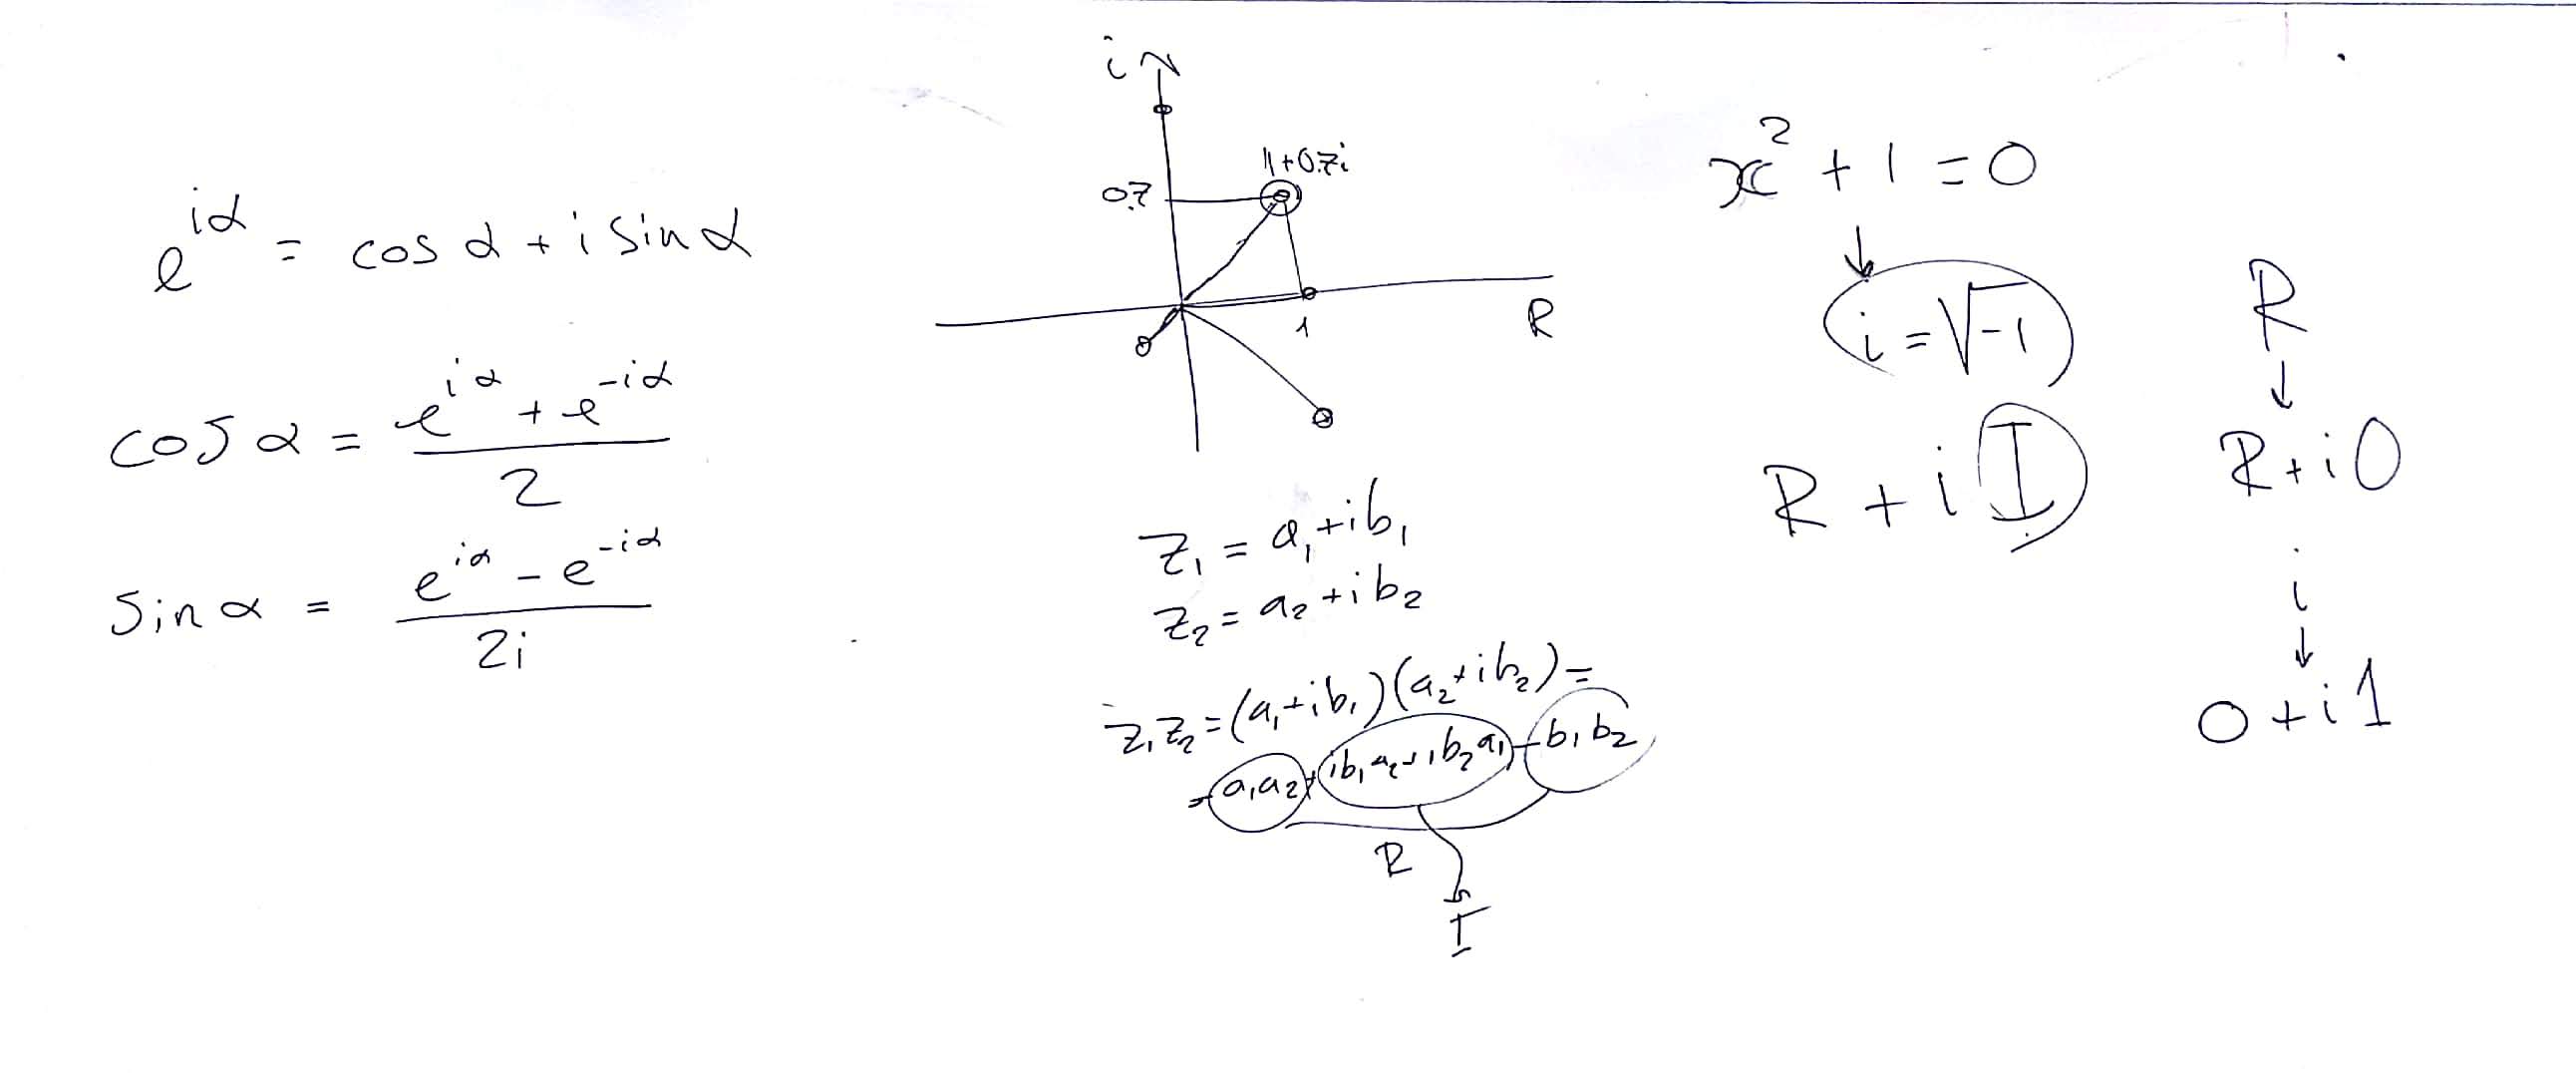 e^{iα} = cos α + i sin α
cos α = (e^{iα} + e^{-iα}) / 2
sin α = (e^{iα} - e^{-iα}) / 2i
i
1+0.7i
0.7
1
R
z₁ = a₁+ib₁
z₂ = a₂+ib₂
z₁z₂=(a₁+ib₁)(a₂+ib₂)=
=a₁a₂+ib₁a₂+ib₂a₁-b₁b₂
R
I
x² + 1 = 0
↓
i = √-1
R + i I
R
↓
R+i0
i
↓
0+i1